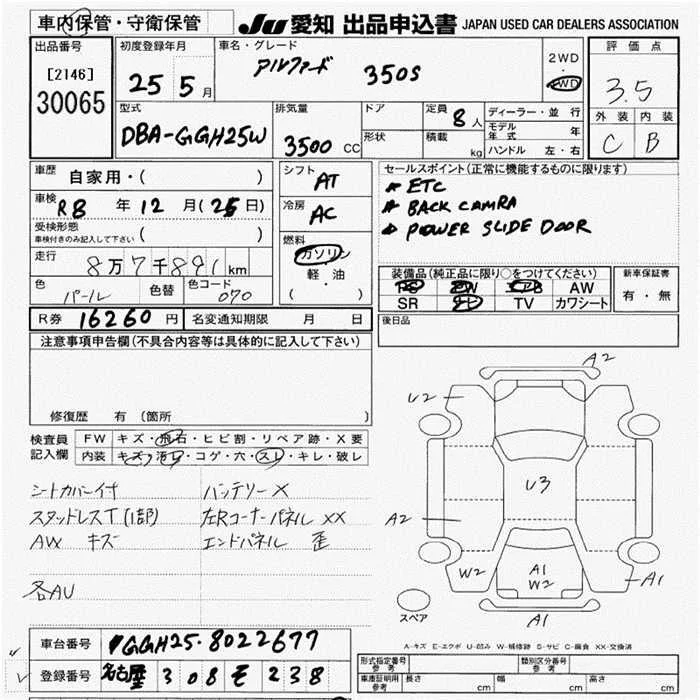 車内保管・守衛保管
JU 愛知 出品申込書 JAPAN USED CAR DEALERS ASSOCIATION
出品番号
[2146]
30065
初度登録年月
25 5 月
車名・グレード
アルファード 350S
2WD
・
4WD
評価点
3.5
外装 内装
C B
型式
DBA-GGH25W
排気量
3500 CC
ドア
形状
定員 8 人
積載 kg
ディーラー・並行
モデル年式 年
ハンドル 左・右
車歴 自家用・( )
車検 R8 年 12 月(25日)
受検形態
車検付きのみ記入して下さい ( )
走行 8万7千891km
色 パール 色替 色コード 070
シフト AT
冷房 AC
燃料
ガソリン
軽・油
( )
セールスポイント(正常に機能するものに限ります)
ETC
BACK CAMRA
POWER SLIDE DOOR
装備品(純正品に限り○をつけてください)
PS PW エアB AW
SR ナビ TV カワシート
新車保証書
有・無
R券 16260 円 名変通知期限 月 日
後日品
注意事項申告欄(不具合内容等は具体的に記入して下さい)
修復歴 有(箇所 )
検査員記入欄
FW キズ・飛石・ヒビ割・リペア跡・X要
内装 キズ・汚レ・コゲ・穴・スレ・キレ・破レ
シートカバー付 バッテリーX
スタッドレスT(1部) 左Rコーナーパネル XX
AW キズ エンドパネル 歪
各AU
A2
U2
U3
A2
W2
A1
W2
A1
A1
スペア
A-キズ E-エクボ U-凹み W-補修跡 S-サビ C-腐食 XX-交換済
車台番号 GGH25-8022677
登録番号 名古屋 308 モ 238
形式指定番号
参考
類別区分番号
参考
車庫証明用
参考
長さ cm 幅 cm 高さ cm